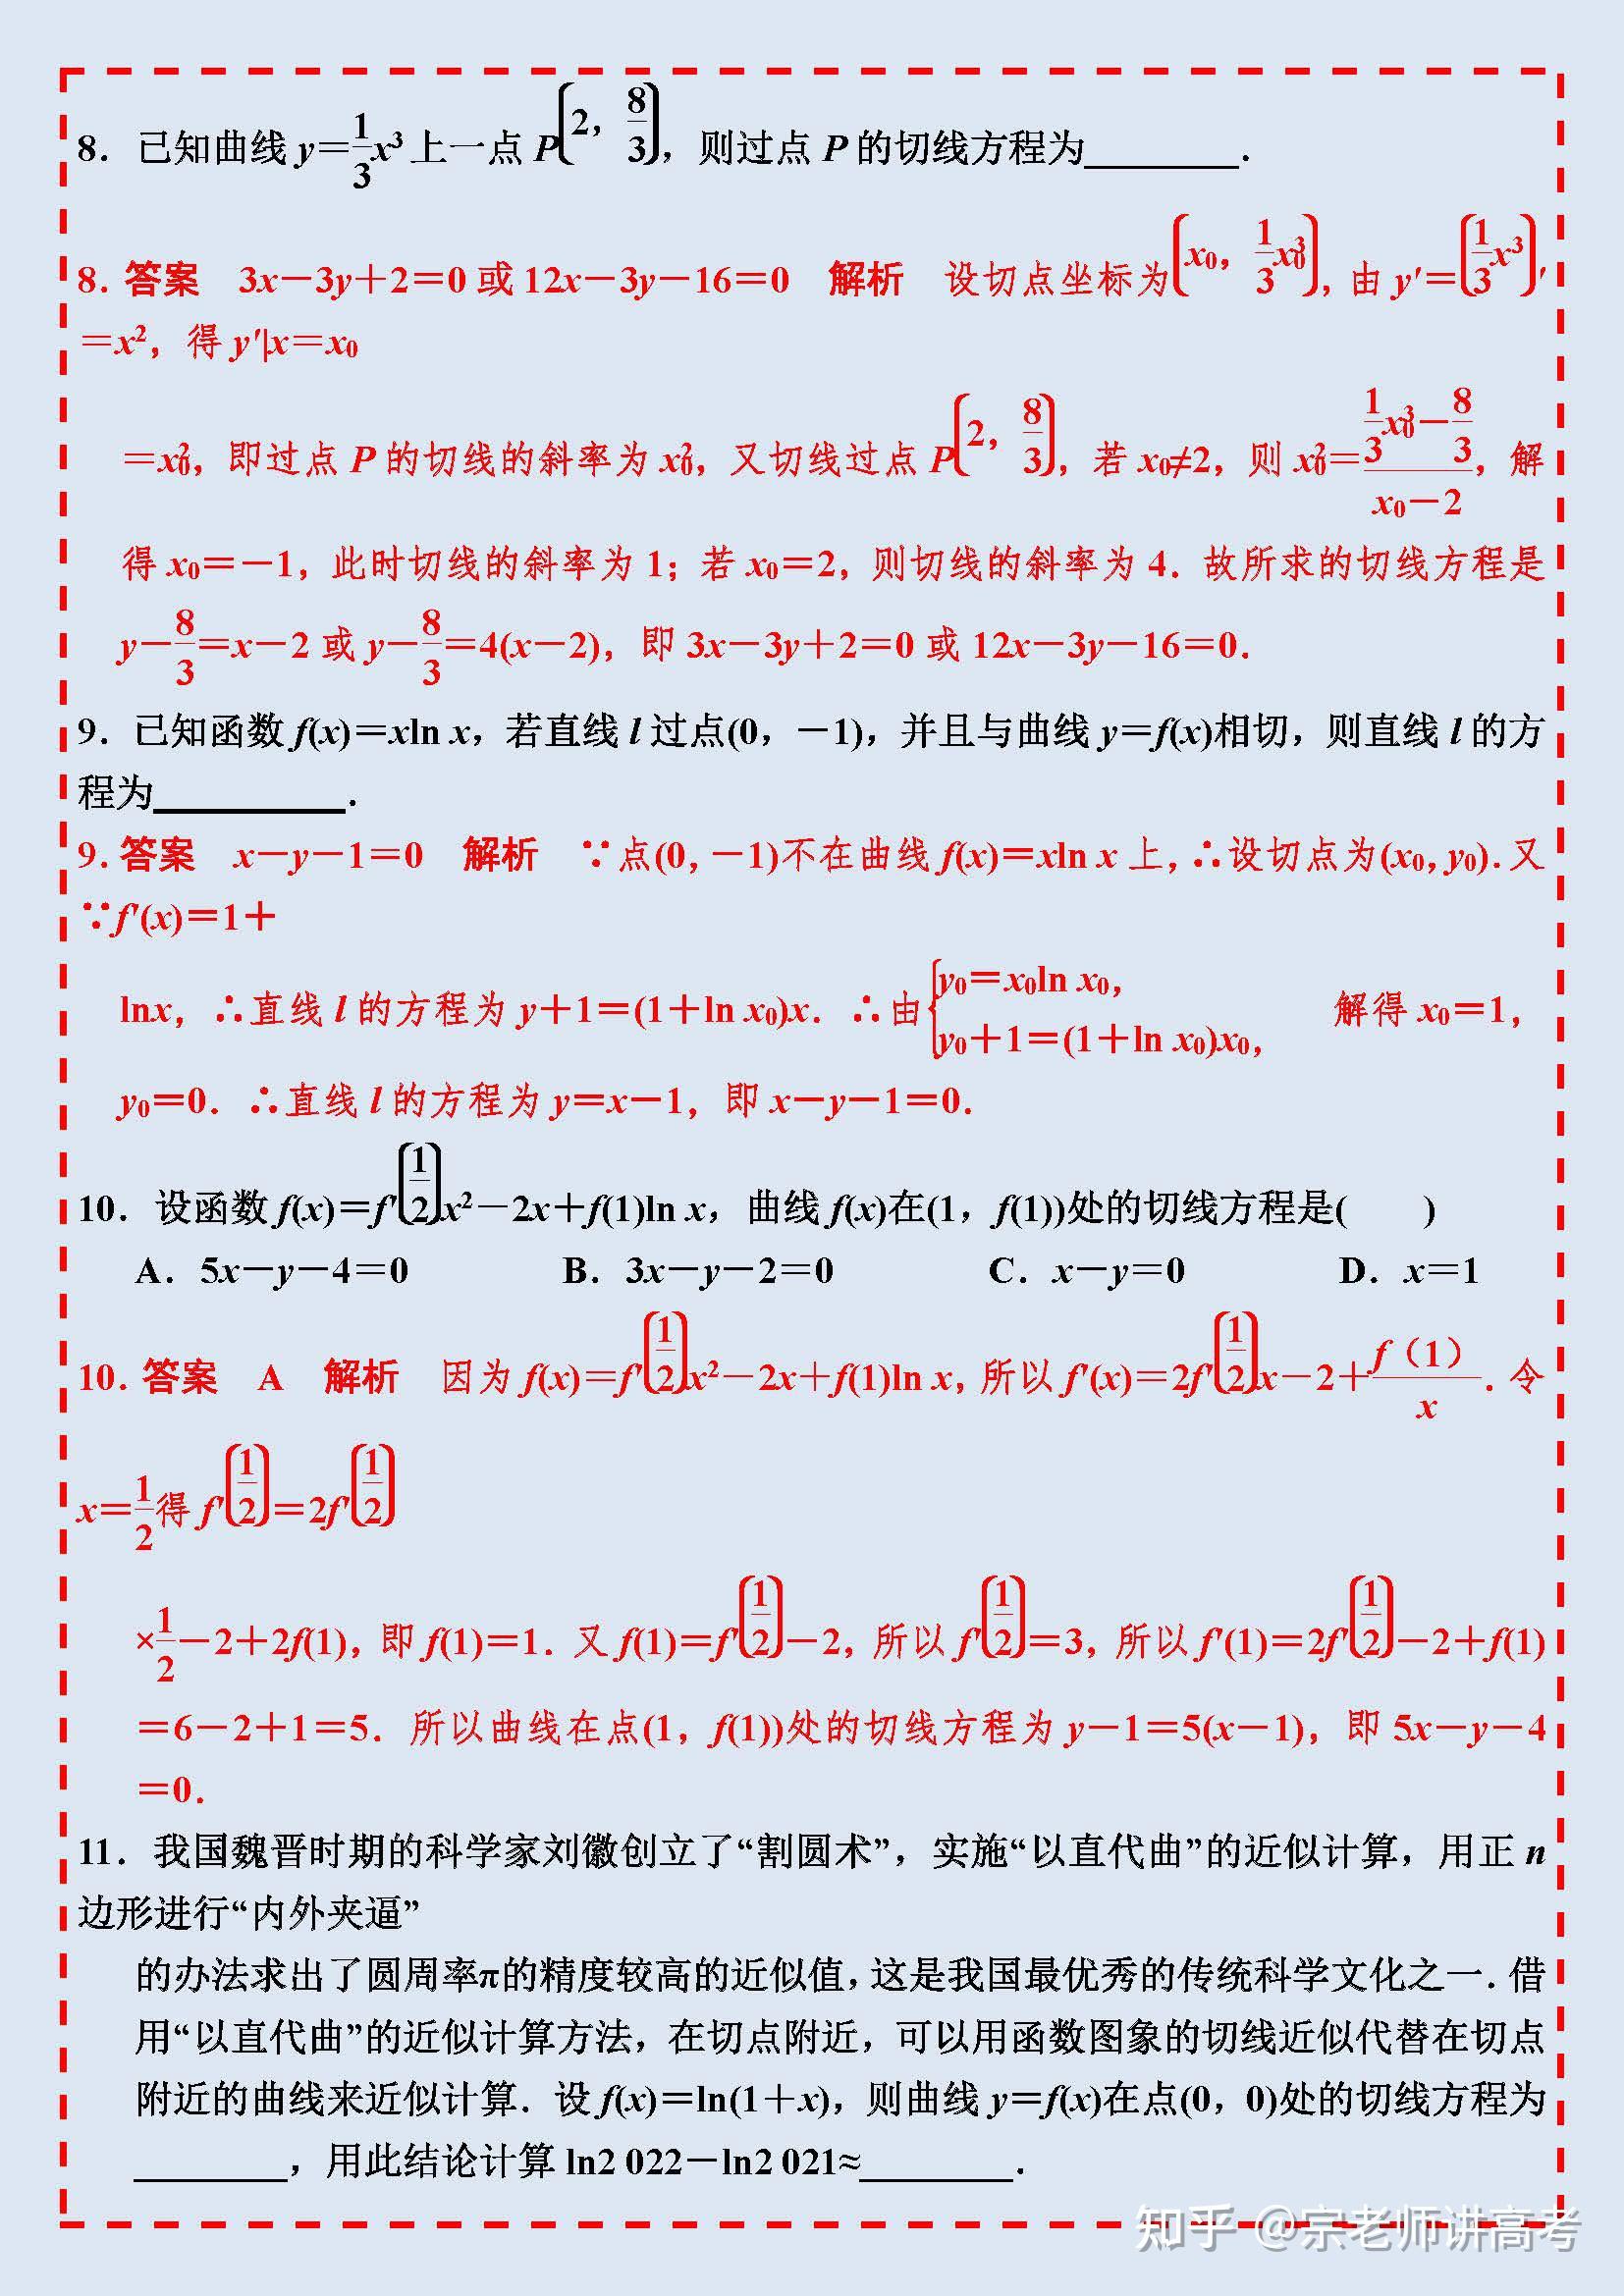 8．已知曲线 y＝1/3x³上一点 P(2，8/3)，则过点 P 的切线方程为________．
8. 答案　3x－3y＋2＝0 或 12x－3y－16＝0　解析　设切点坐标为(x₀，1/3x₀³)，由 y′＝(1/3x³)′
＝x²，得 y′|x＝x₀
＝x₀²，即过点 P 的切线的斜率为 x₀²，又切线过点 P(2，8/3)，若 x₀≠2，则 x₀²＝(1/3x₀³－8/3)/(x₀－2)，解
得 x₀＝－1，此时切线的斜率为 1；若 x₀＝2，则切线的斜率为 4．故所求的切线方程是
y－8/3＝x－2 或 y－8/3＝4(x－2)，即 3x－3y＋2＝0 或 12x－3y－16＝0．
9．已知函数 f(x)＝xln x，若直线 l 过点(0，－1)，并且与曲线 y＝f(x)相切，则直线 l 的方
程为__________．
9. 答案　x－y－1＝0　解析　∵点(0，－1)不在曲线 f(x)＝xln x 上，∴设切点为(x₀，y₀)．又
∵f′(x)＝1＋
lnx，∴直线 l 的方程为 y＋1＝(1＋ln x₀)x．∴由{y₀＝x₀ln x₀，y₀＋1＝(1＋ln x₀)x₀，　解得 x₀＝1，
y₀＝0．∴直线 l 的方程为 y＝x－1，即 x－y－1＝0．
10．设函数 f(x)＝f′(1/2)x²－2x＋f(1)ln x，曲线 f(x)在(1，f(1))处的切线方程是(　　)
A．5x－y－4＝0　B．3x－y－2＝0　C．x－y＝0　D．x＝1
10. 答案　A　解析　因为 f(x)＝f′(1/2)x²－2x＋f(1)ln x，所以 f′(x)＝2f′(1/2)x－2＋f（1）/x．令
x＝1/2得 f′(1/2)＝2f′(1/2)
×1/2－2＋2f(1)，即 f(1)＝1．又 f(1)＝f′(1/2)－2，所以 f′(1/2)＝3，所以 f′(1)＝2f′(1/2)－2＋f(1)
＝6－2＋1＝5．所以曲线在点(1，f(1))处的切线方程为 y－1＝5(x－1)，即 5x－y－4
＝0．
11．我国魏晋时期的科学家刘徽创立了“割圆术”，实施“以直代曲”的近似计算，用正 n
边形进行“内外夹逼”
的办法求出了圆周率π的精度较高的近似值，这是我国最优秀的传统科学文化之一．借
用“以直代曲”的近似计算方法，在切点附近，可以用函数图象的切线近似代替在切点
附近的曲线来近似计算．设 f(x)＝ln(1＋x)，则曲线 y＝f(x)在点(0，0)处的切线方程为
________，用此结论计算 ln2 022－ln2 021≈________．
知乎 @宗老师讲高考